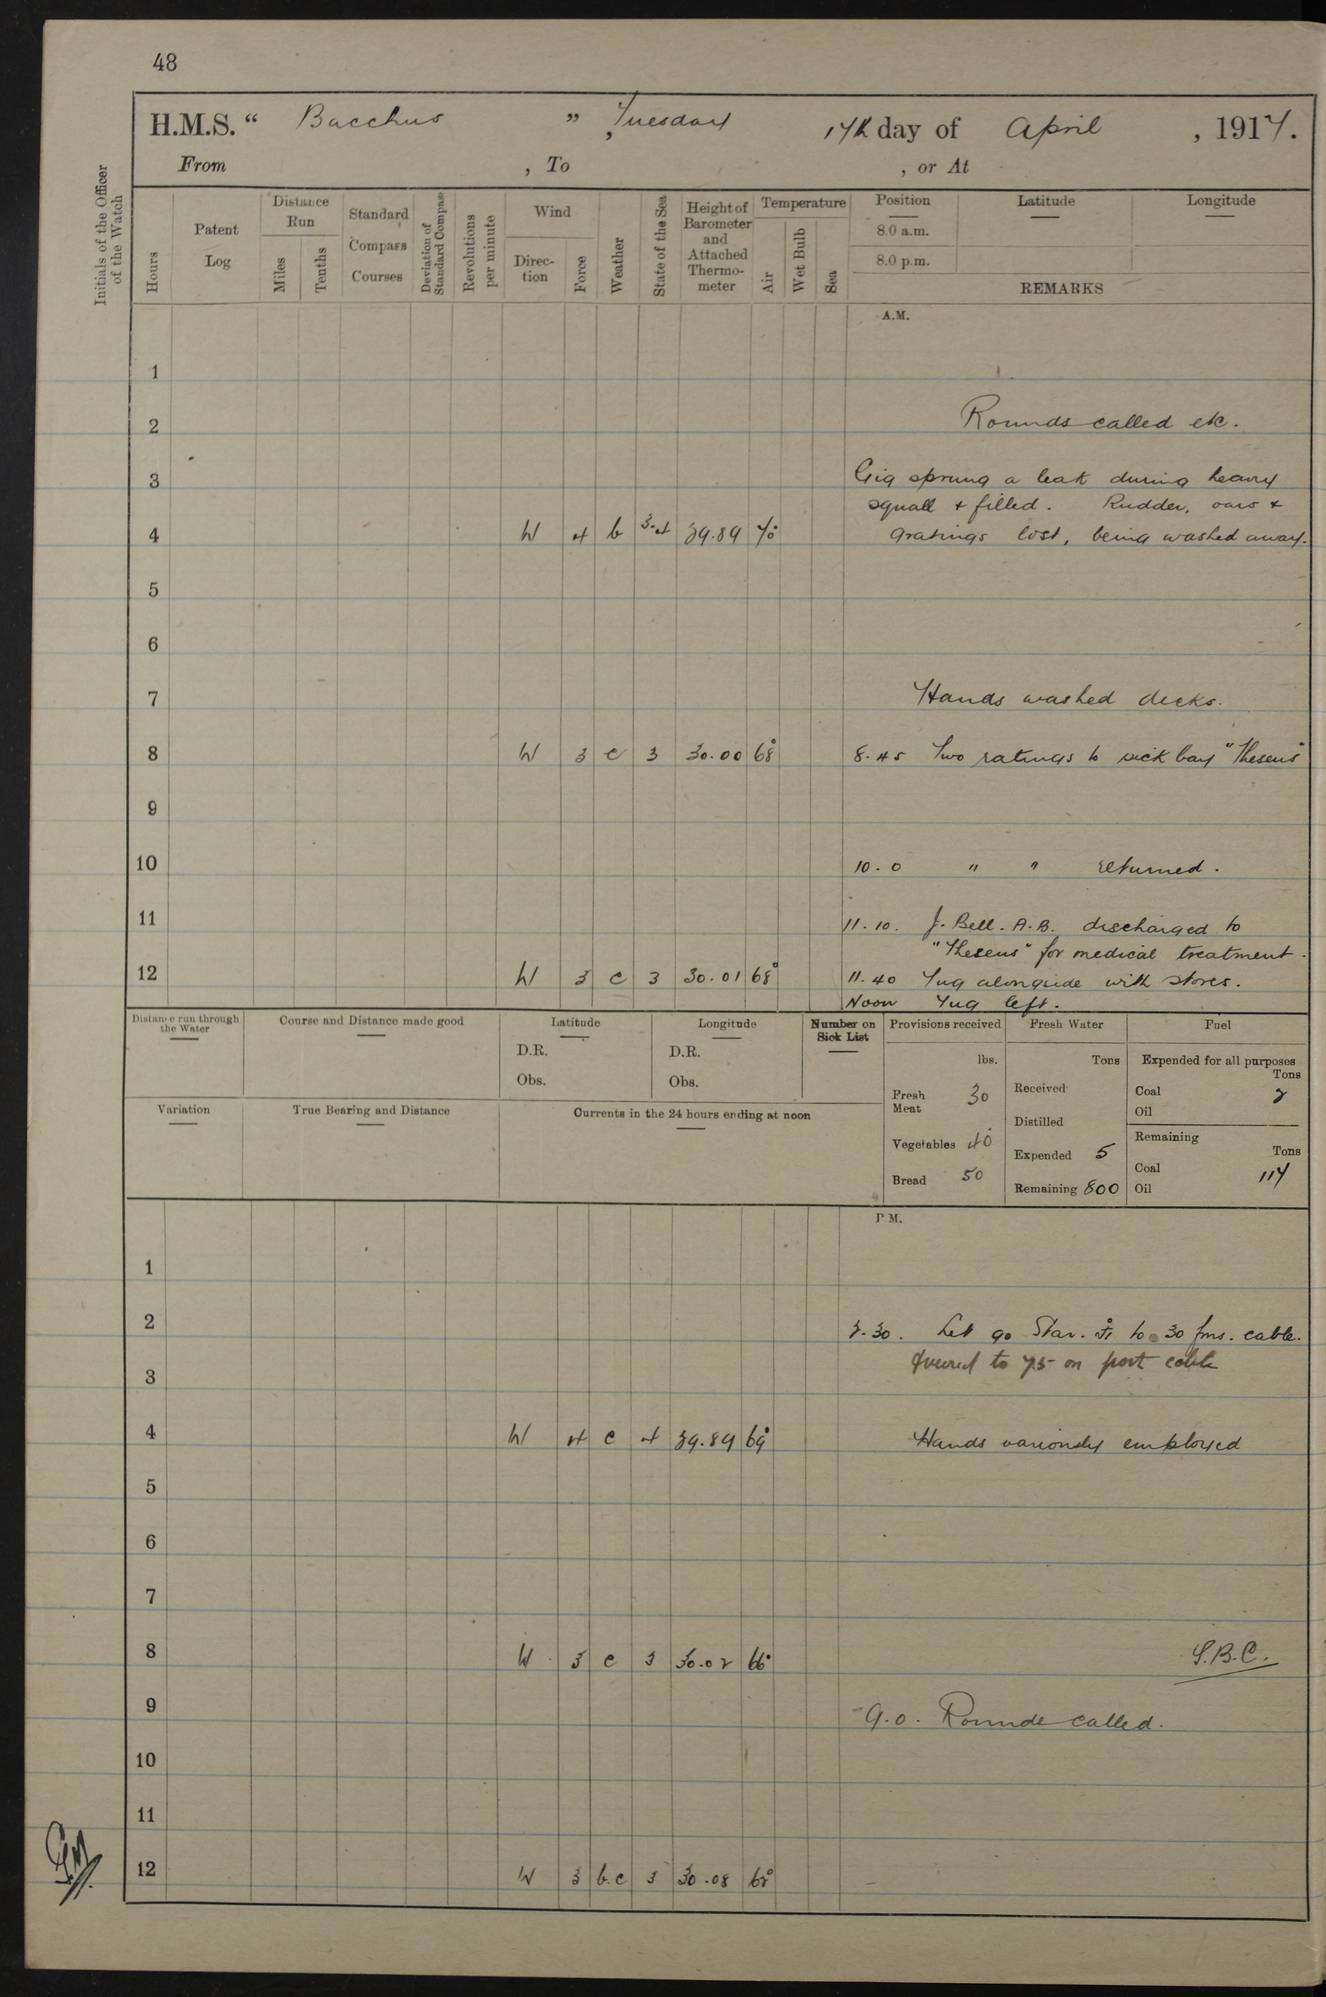 48
H.M.S. “ Bacchus ” , Tuesday 17th day of April , 1917.
From , To , or At
Initials of the Officer of the Watch
Hours
Patent Log
Distance Run
Miles
Tenths
Standard Compass Courses
Deviation of Standard Compass
Revolutions per minute
Wind
Direc-tion
Force
Weather
State of the Sea
Height of Barometer and Attached Thermo-meter
Temperature
Air
Wet Bulb
Sea
Position Latitude Longitude
8.0 a.m.
8.0 p.m.
REMARKS
A.M.
1
2 Rounds called etc.
3 Gig sprung a leak during heavy
squall & filled. Rudder, oars &
4 W 4 b 3.4 29.89 70° gratings lost, being washed away.
5
6
7 Hands washed decks.
8 W 3 c 3 30.00 68° 8.45 Two ratings to sick bay "Theseus"
9
10 10.0 " " returned.
11 11.10. J. Bell. A.B. discharged to
"Theseus" for medical treatment.
12 W 3 c 3 30.01 68° 11.40 Tug alongside with stores.
Noon Tug left.
Distance run through the Water
Course and Distance made good
Latitude
D.R.
Obs.
Longitude
D.R.
Obs.
Number on Sick List
Provisions received
lbs.
Fresh Meat 30
Vegetables 40
Bread 50
Fresh Water
Tons
Received
Distilled
Expended 5
Remaining 800
Fuel
Expended for all purposes
Tons
Coal 2
Oil
Remaining
Tons
Coal 117
Oil
Variation
True Bearing and Distance
Currents in the 24 hours ending at noon
P.M.
1
2 2.30. Let go Star. to 30 fms. cable.
Veered to 75 on port cable
3
4 W 4 c 4 29.89 69° Hands variously employed
5
6
7
8 W 3 c 3 30.02 66° S.B.C.
9 9.0. Rounds called.
10
11
12 W 3 b.c 3 30.08 68°